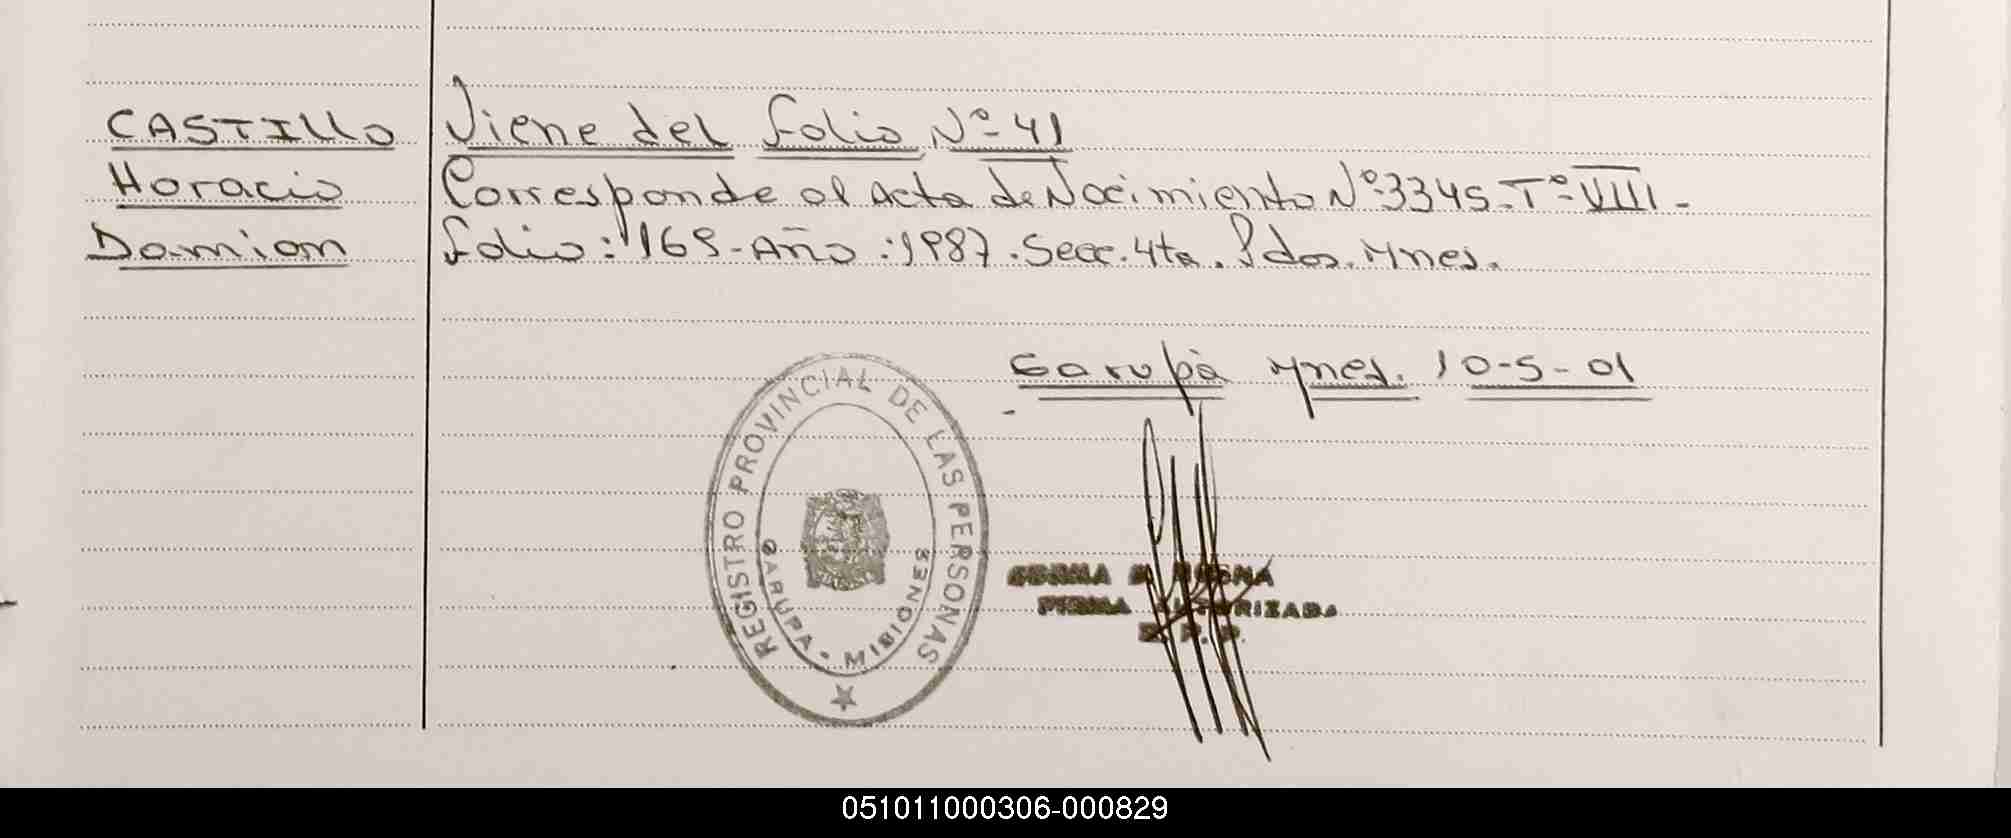 CASTILLO Viene del folio Nº 41
Horacio Corresponde al Acta de Nacimiento Nº 3345 - Tº VIII -
Damian folio: 169 - Año: 1987. Secc. 4ta. Pdas. Mnes.
Garupà Mnes. 10-5-01
REGISTRO PROVINCIAL DE LAS PERSONAS
GARUPA - MISIONES
FIRMA AUTORIZADA
R. P. P.
051011000306-000829